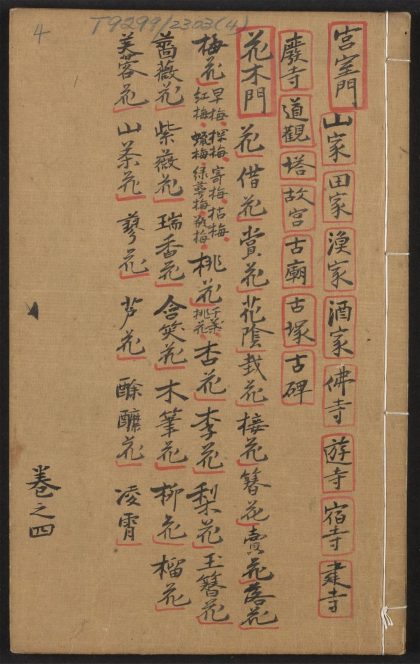 4 T9299/2303(4)
宮室門 山家 田家 漁家 酒家 佛寺 遊寺 宿寺
廢寺 道觀 塔 故宮 古廟 古塚 古碑
花木門 花 借花 賞花 花陰 栽花 接花 簪花 賣花 落花
梅花 早梅 探梅 寄梅 枯梅 紅梅 蠟梅 綠萼梅 瓶梅 桃花 千葉桃花 杏花 李花 梨花 玉簪花
薔薇花 紫薇花 瑞香花 含笑花 木筆花 柳花 榴花
芙蓉花 山茶花 蓼花 芦花 酴醿花 凌霄
卷之四